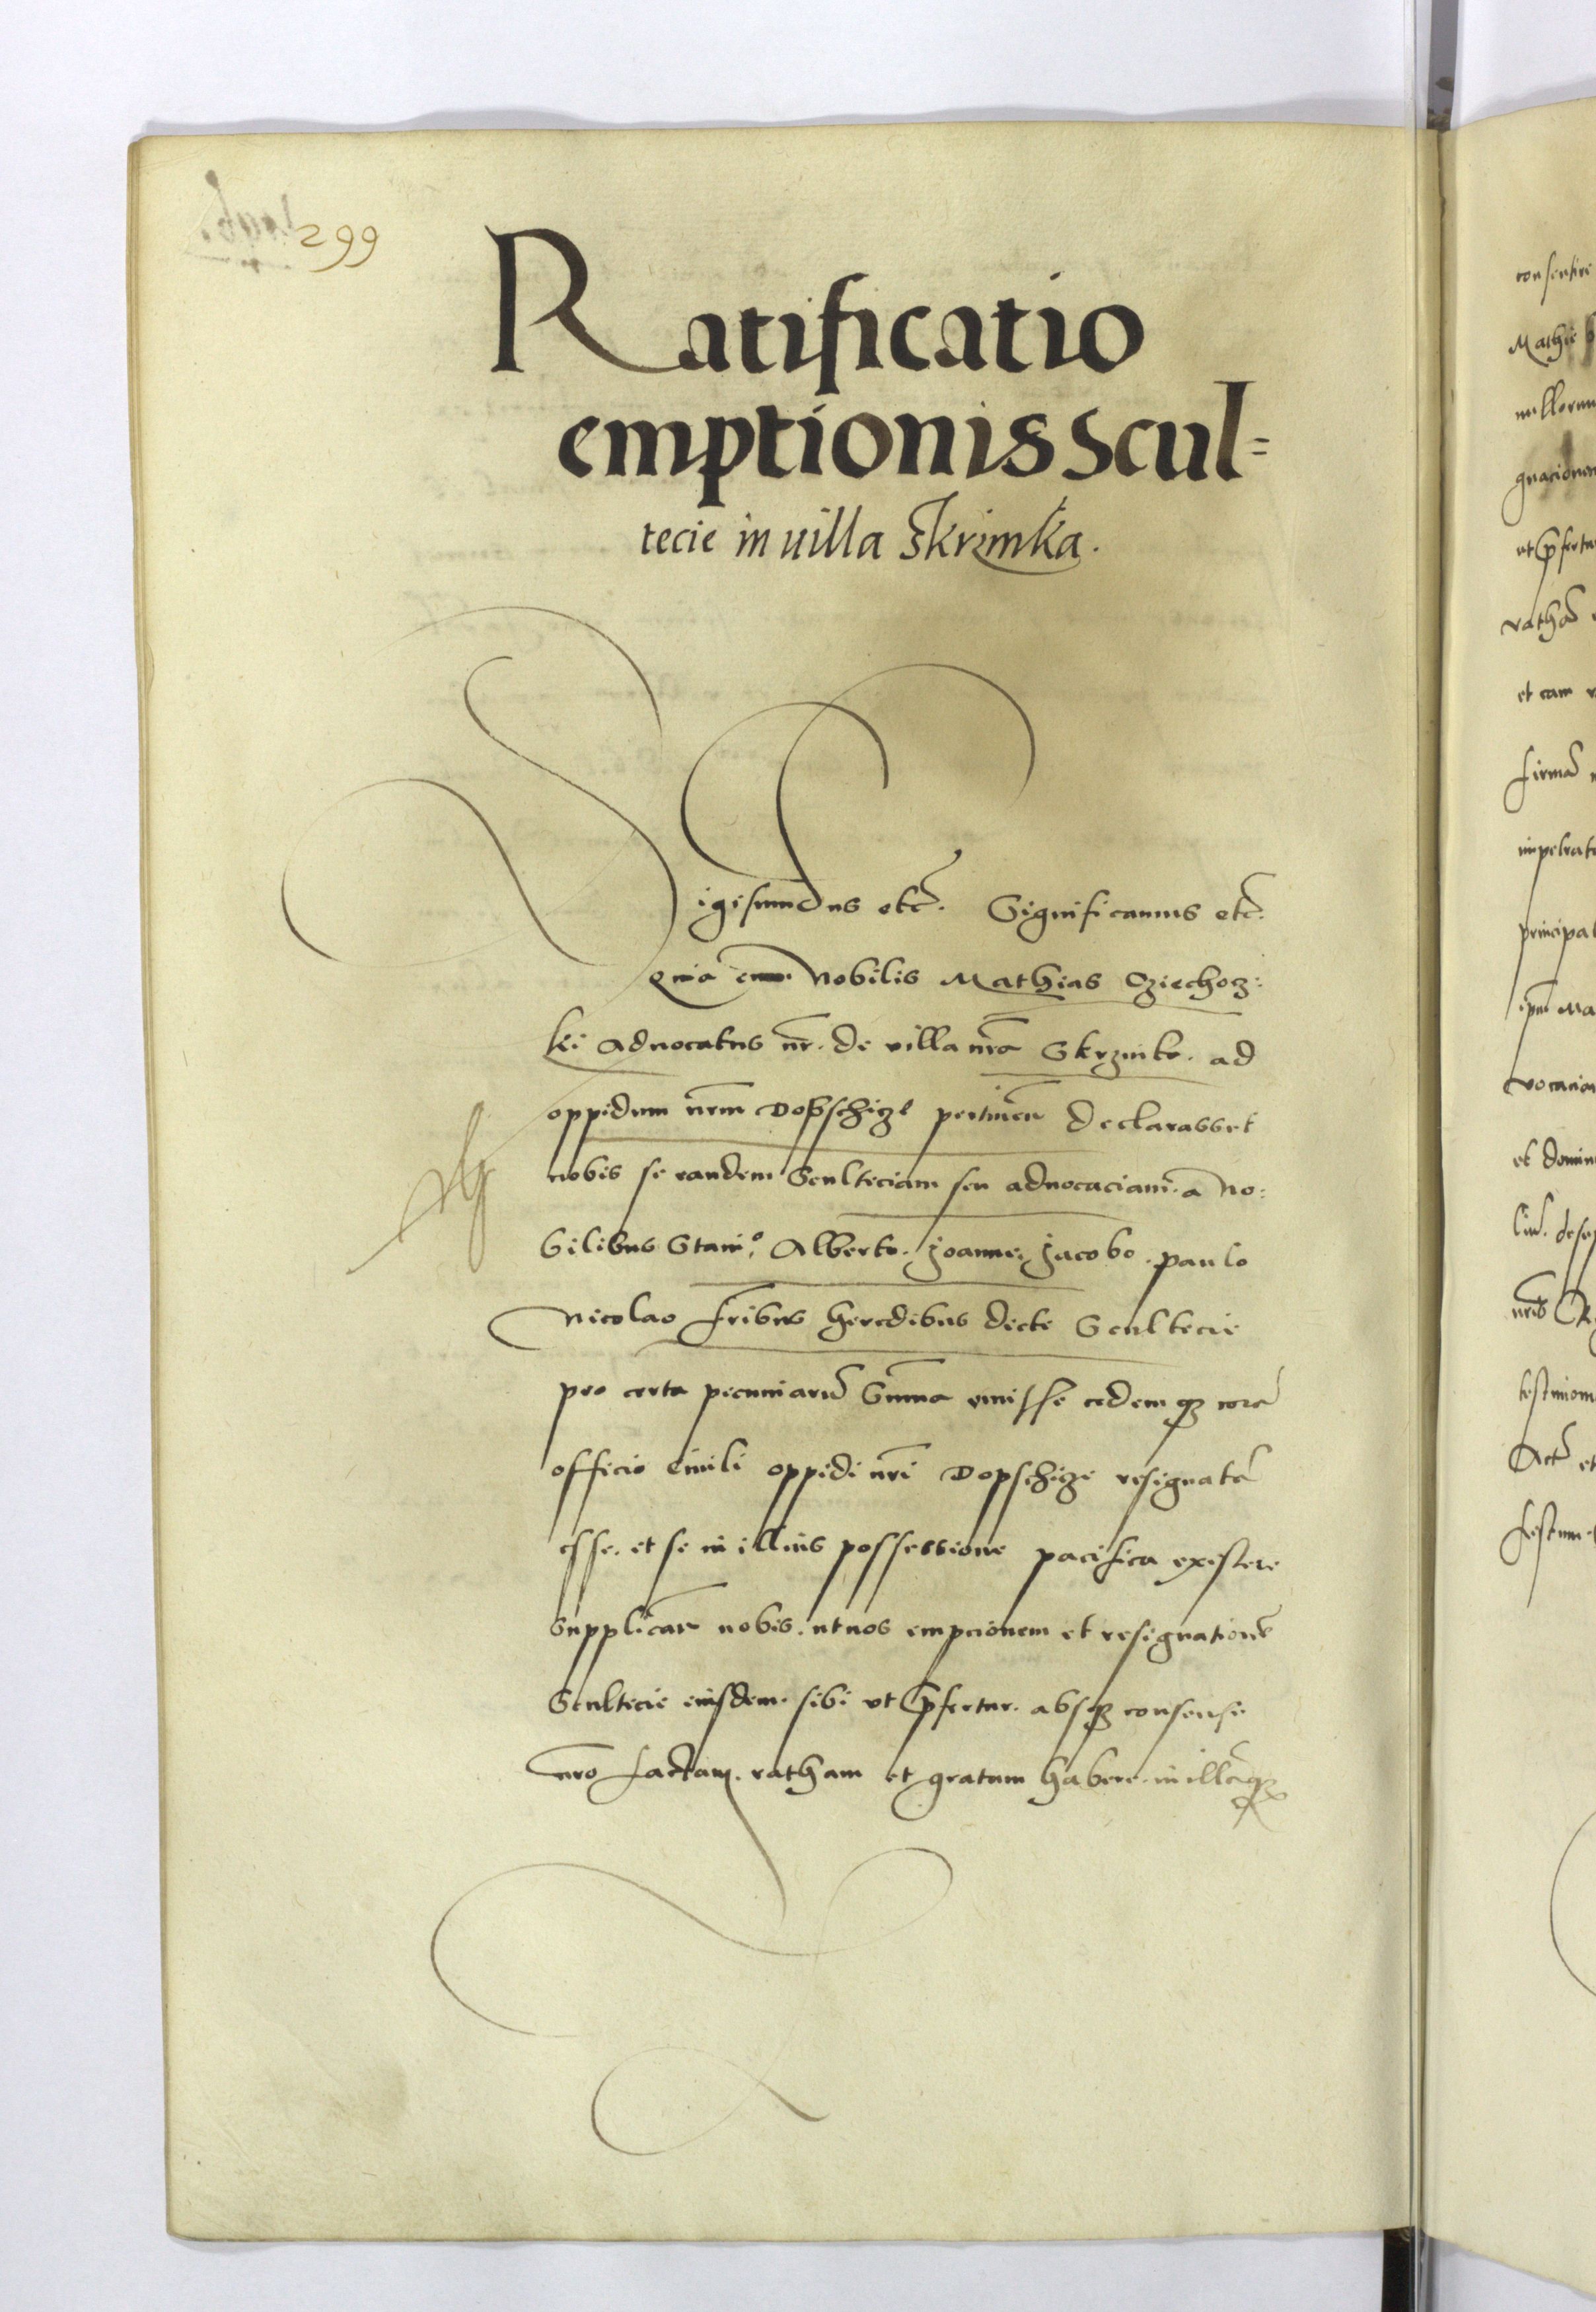 299
Ratificatio
emptionis scul=
tecie in uilla Skrzinka.
Sigismundus etc̃. Significamus etc̃.
Quia Nobilis Mathias Cziechoz:
ki Aduocatus nr̃. de villa nr̃a Skrzinka. ad
oppidum nr̃m Dobschize pertineñ declarasset
nobis se eandem Sculteciam seu aduocaciam. a No:
bilibus Stani.º Alberto. Joanne. Jacobo. Paulo
Nicolao fr̃ibus heredibus dicte Scultecie
pro certa pecuniarũ Sum̃a emisse eidemqʒ corã
officio ciuili oppidi nr̃i Dopschize resignatã
esse. et se in illius possessione pacifica existere
supplicañ nobis. ut nos empcionem et resignationẽ
Scultecie eiusdem. sibi vt p̃fertur. absqʒ consensu
nr̃o factam. ratham et gratam habere. in illãqʒ
consentire
Mathie
nullorum
gnacionem
et p̃fertu
rathã
et eam
firmã
impetrat
principal
ip̃m Ma
vocacion
et domin
desup
nr̃is
testimoni
Actũ et
festum